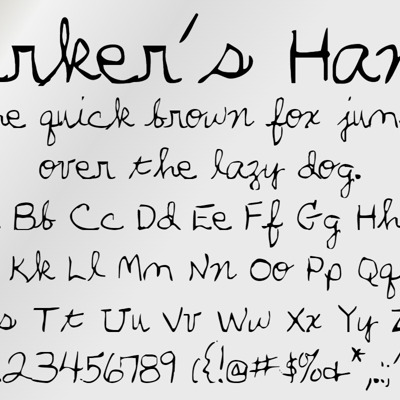 rker's Han
he quick brown fox jum
over the lazy dog.
Bb Cc Dd Ee Ff Gg Hh
Kk Ll Mm Nn Oo Pp Qq
s Tt Uu Vv Ww Xx Yy Z
23456789 ({!@#$%&*,.:;'